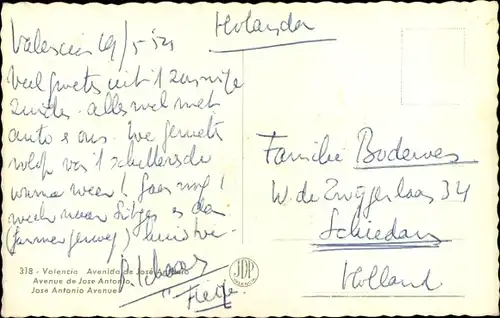 Valencia 19/5 54
Holanda
Veel groets uit 't zonnige
zuiden. alles wel met
auto & ons. We genieten
van 't
weer! Gaan nog 1
week naar Sitges & dan
(jammer genoeg)
Familie Bodewes
W. de Zwijgerlaan 34
Schiedam
Holland
318 - Valencia Avenida de José Antonio
Avenue de Jose Antonio
José Antonio Avenue
JDP